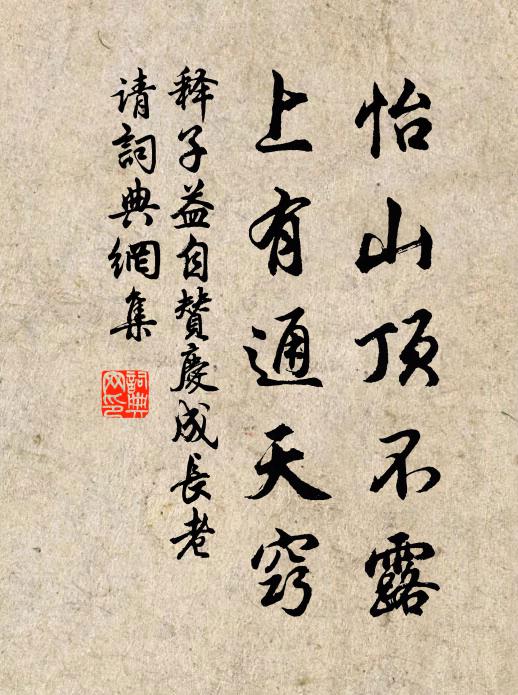 怡山顶不露
上有通天窍
释子益自赞慶成長老
请詞典網集
詞典
网印